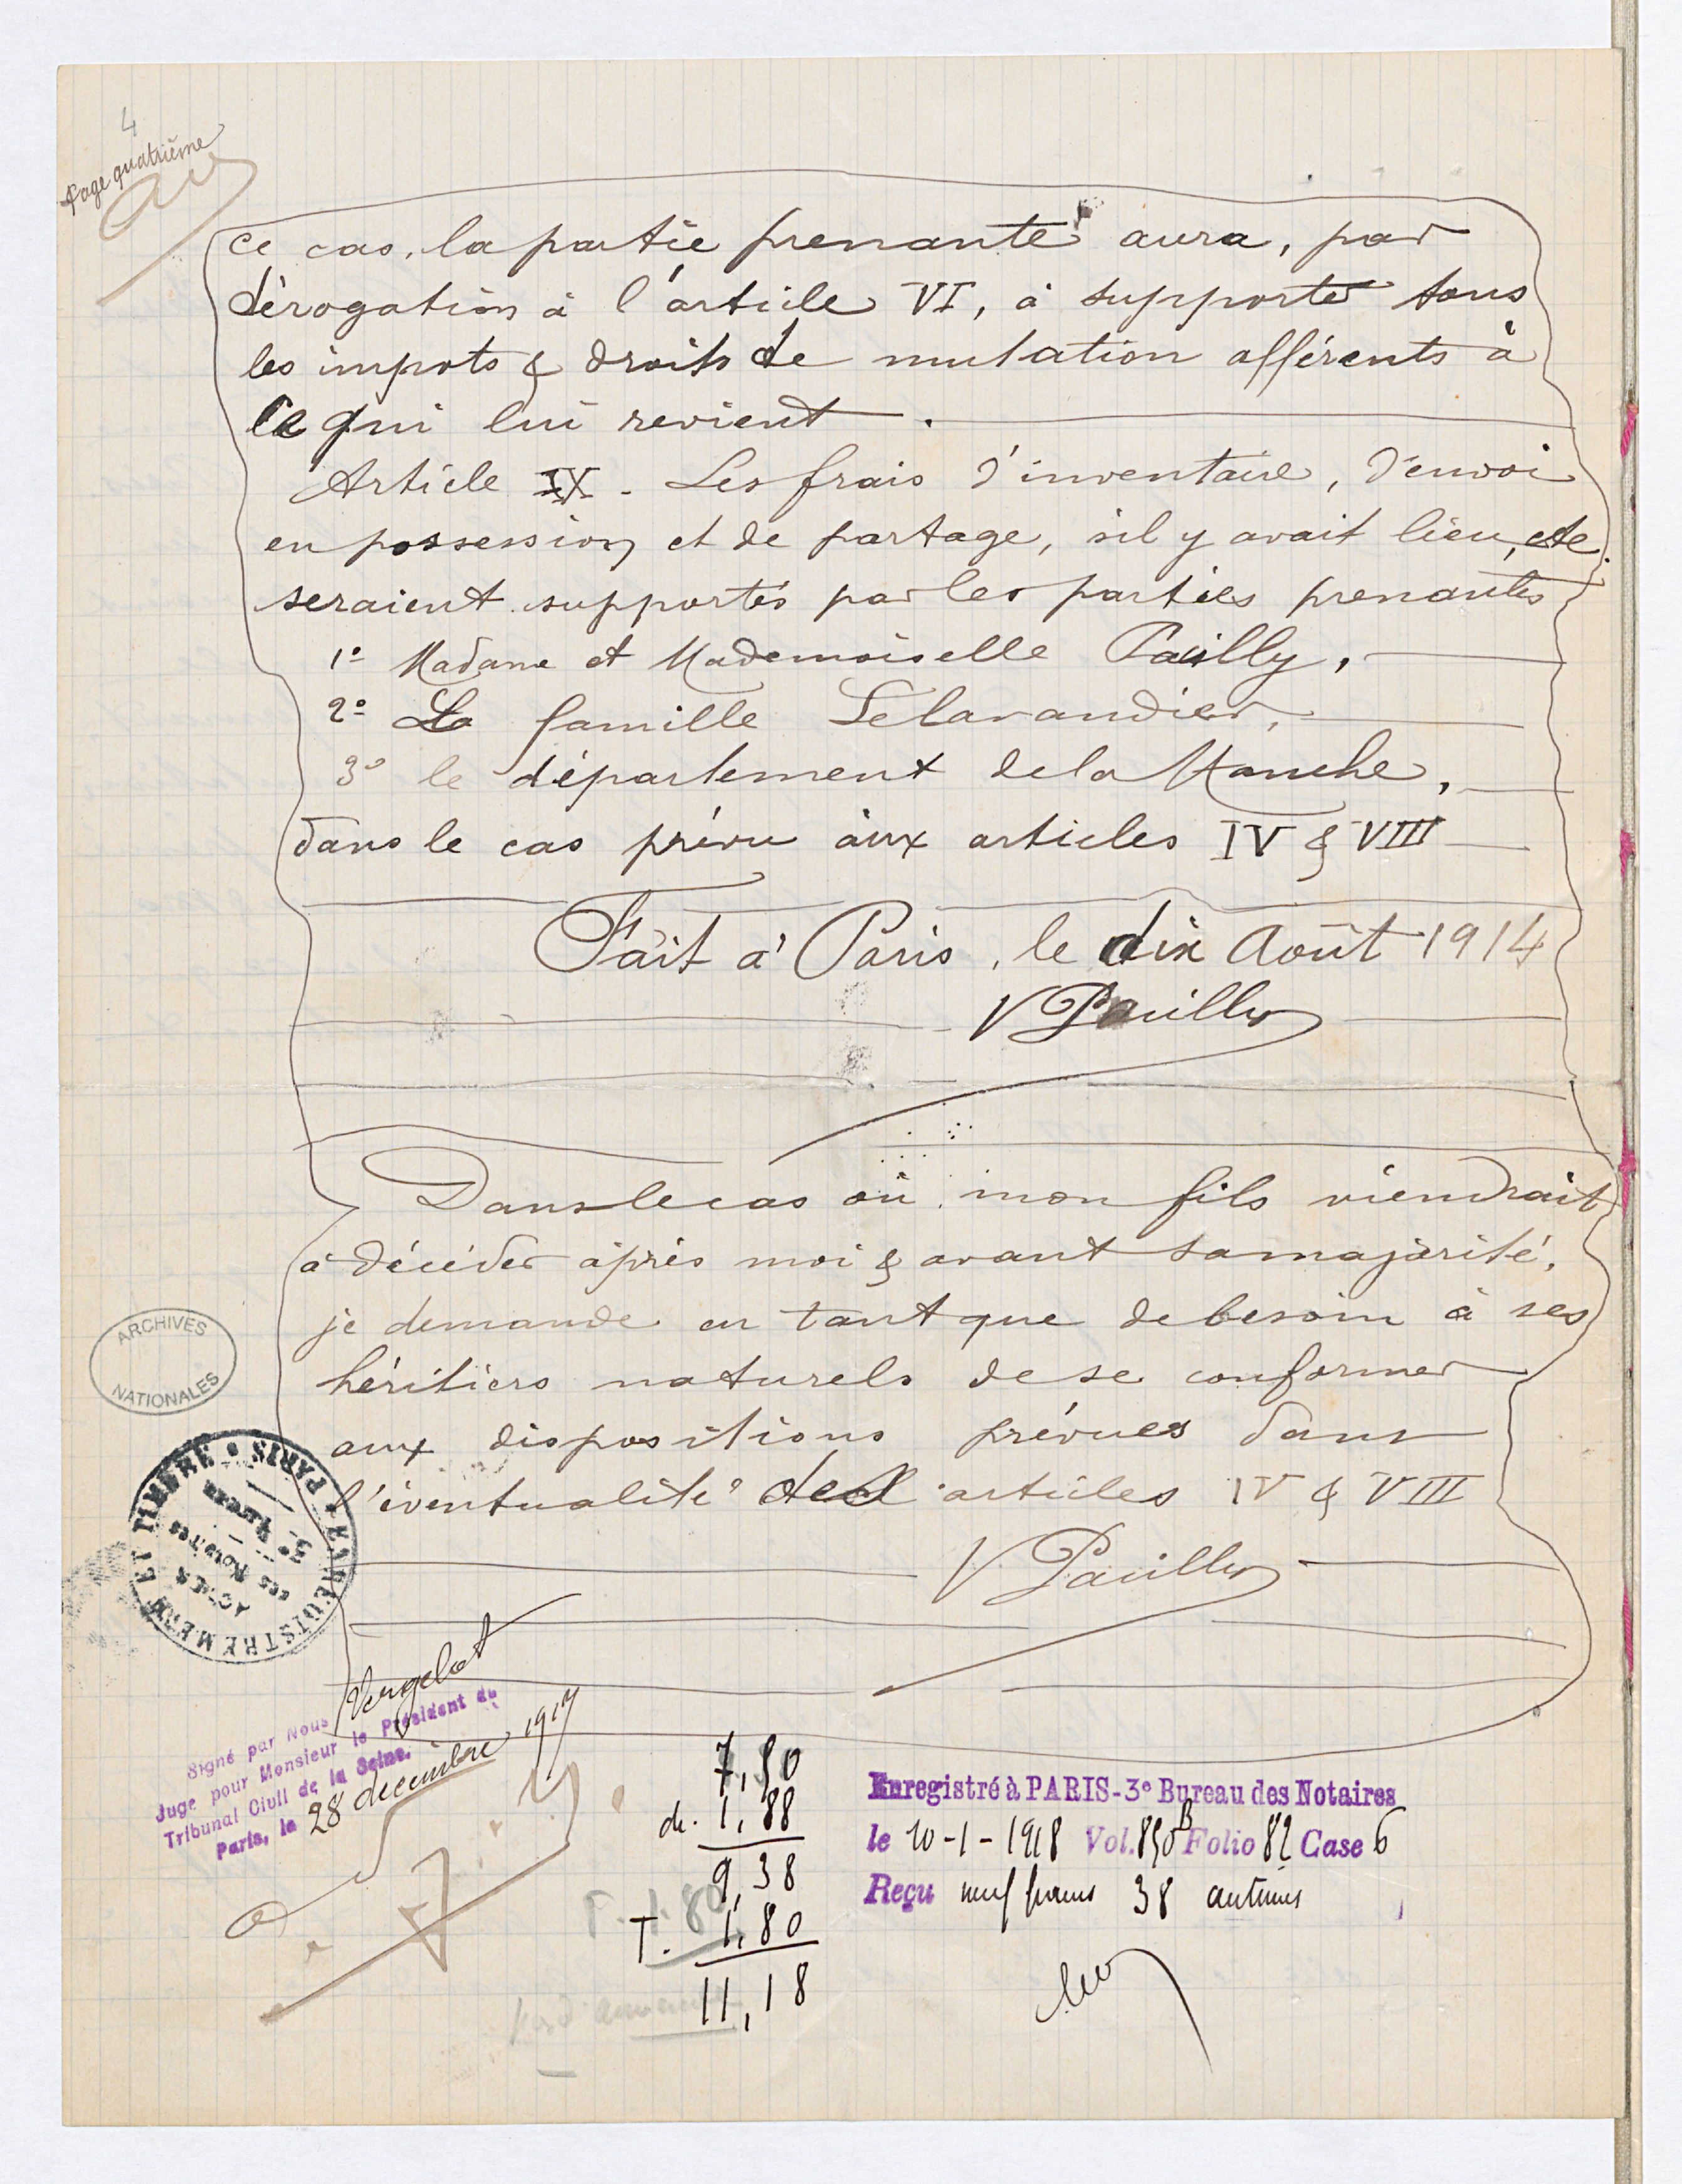 4
Page quatrième
ce cas, la partie prenante aura, par
dérogation à l'article VI, à supporter tous
les impots & droits de mutation afférents à
ce qui lui revient.
Article IX. Les frais d'inventaire, d'envoi
en possession et de partage, s'il y avait lieu, etc
seraient supportés par les parties prenantes
1° Madame et Mademoiselle Pailly,
2° La famille Lelavandier,
3° le département de la Manche,
dans le cas prévu aux articles IV & VIII
Fait à Paris, le dix Août 1914
V Pailly
Dans le cas où mon fils viendrait
à décéder après moi & avant sa majorité,
je demande en tant que de besoin à ses
héritiers naturels de se conformer
aux dispositions prévues dans
l'éventualité des articles IV & VIII
V Pailly
ARCHIVES
NATIONALES
ENREGISTREMENT ET TIMBRE • PARIS •
ACTES
des Notaires
3e
Signé par Nous
Juge pour Monsieur le Président du
Tribunal Civil de la Seine.
Paris, le 28 decembre 1917
7,50
de. 1,88
9,38
T. 1,80
11,18
Enregistré à PARIS - 3e Bureau des Notaires
le 10-1-1918 Vol. 850B Folio 82 Case 6
Reçu neuf francs 38 centimes